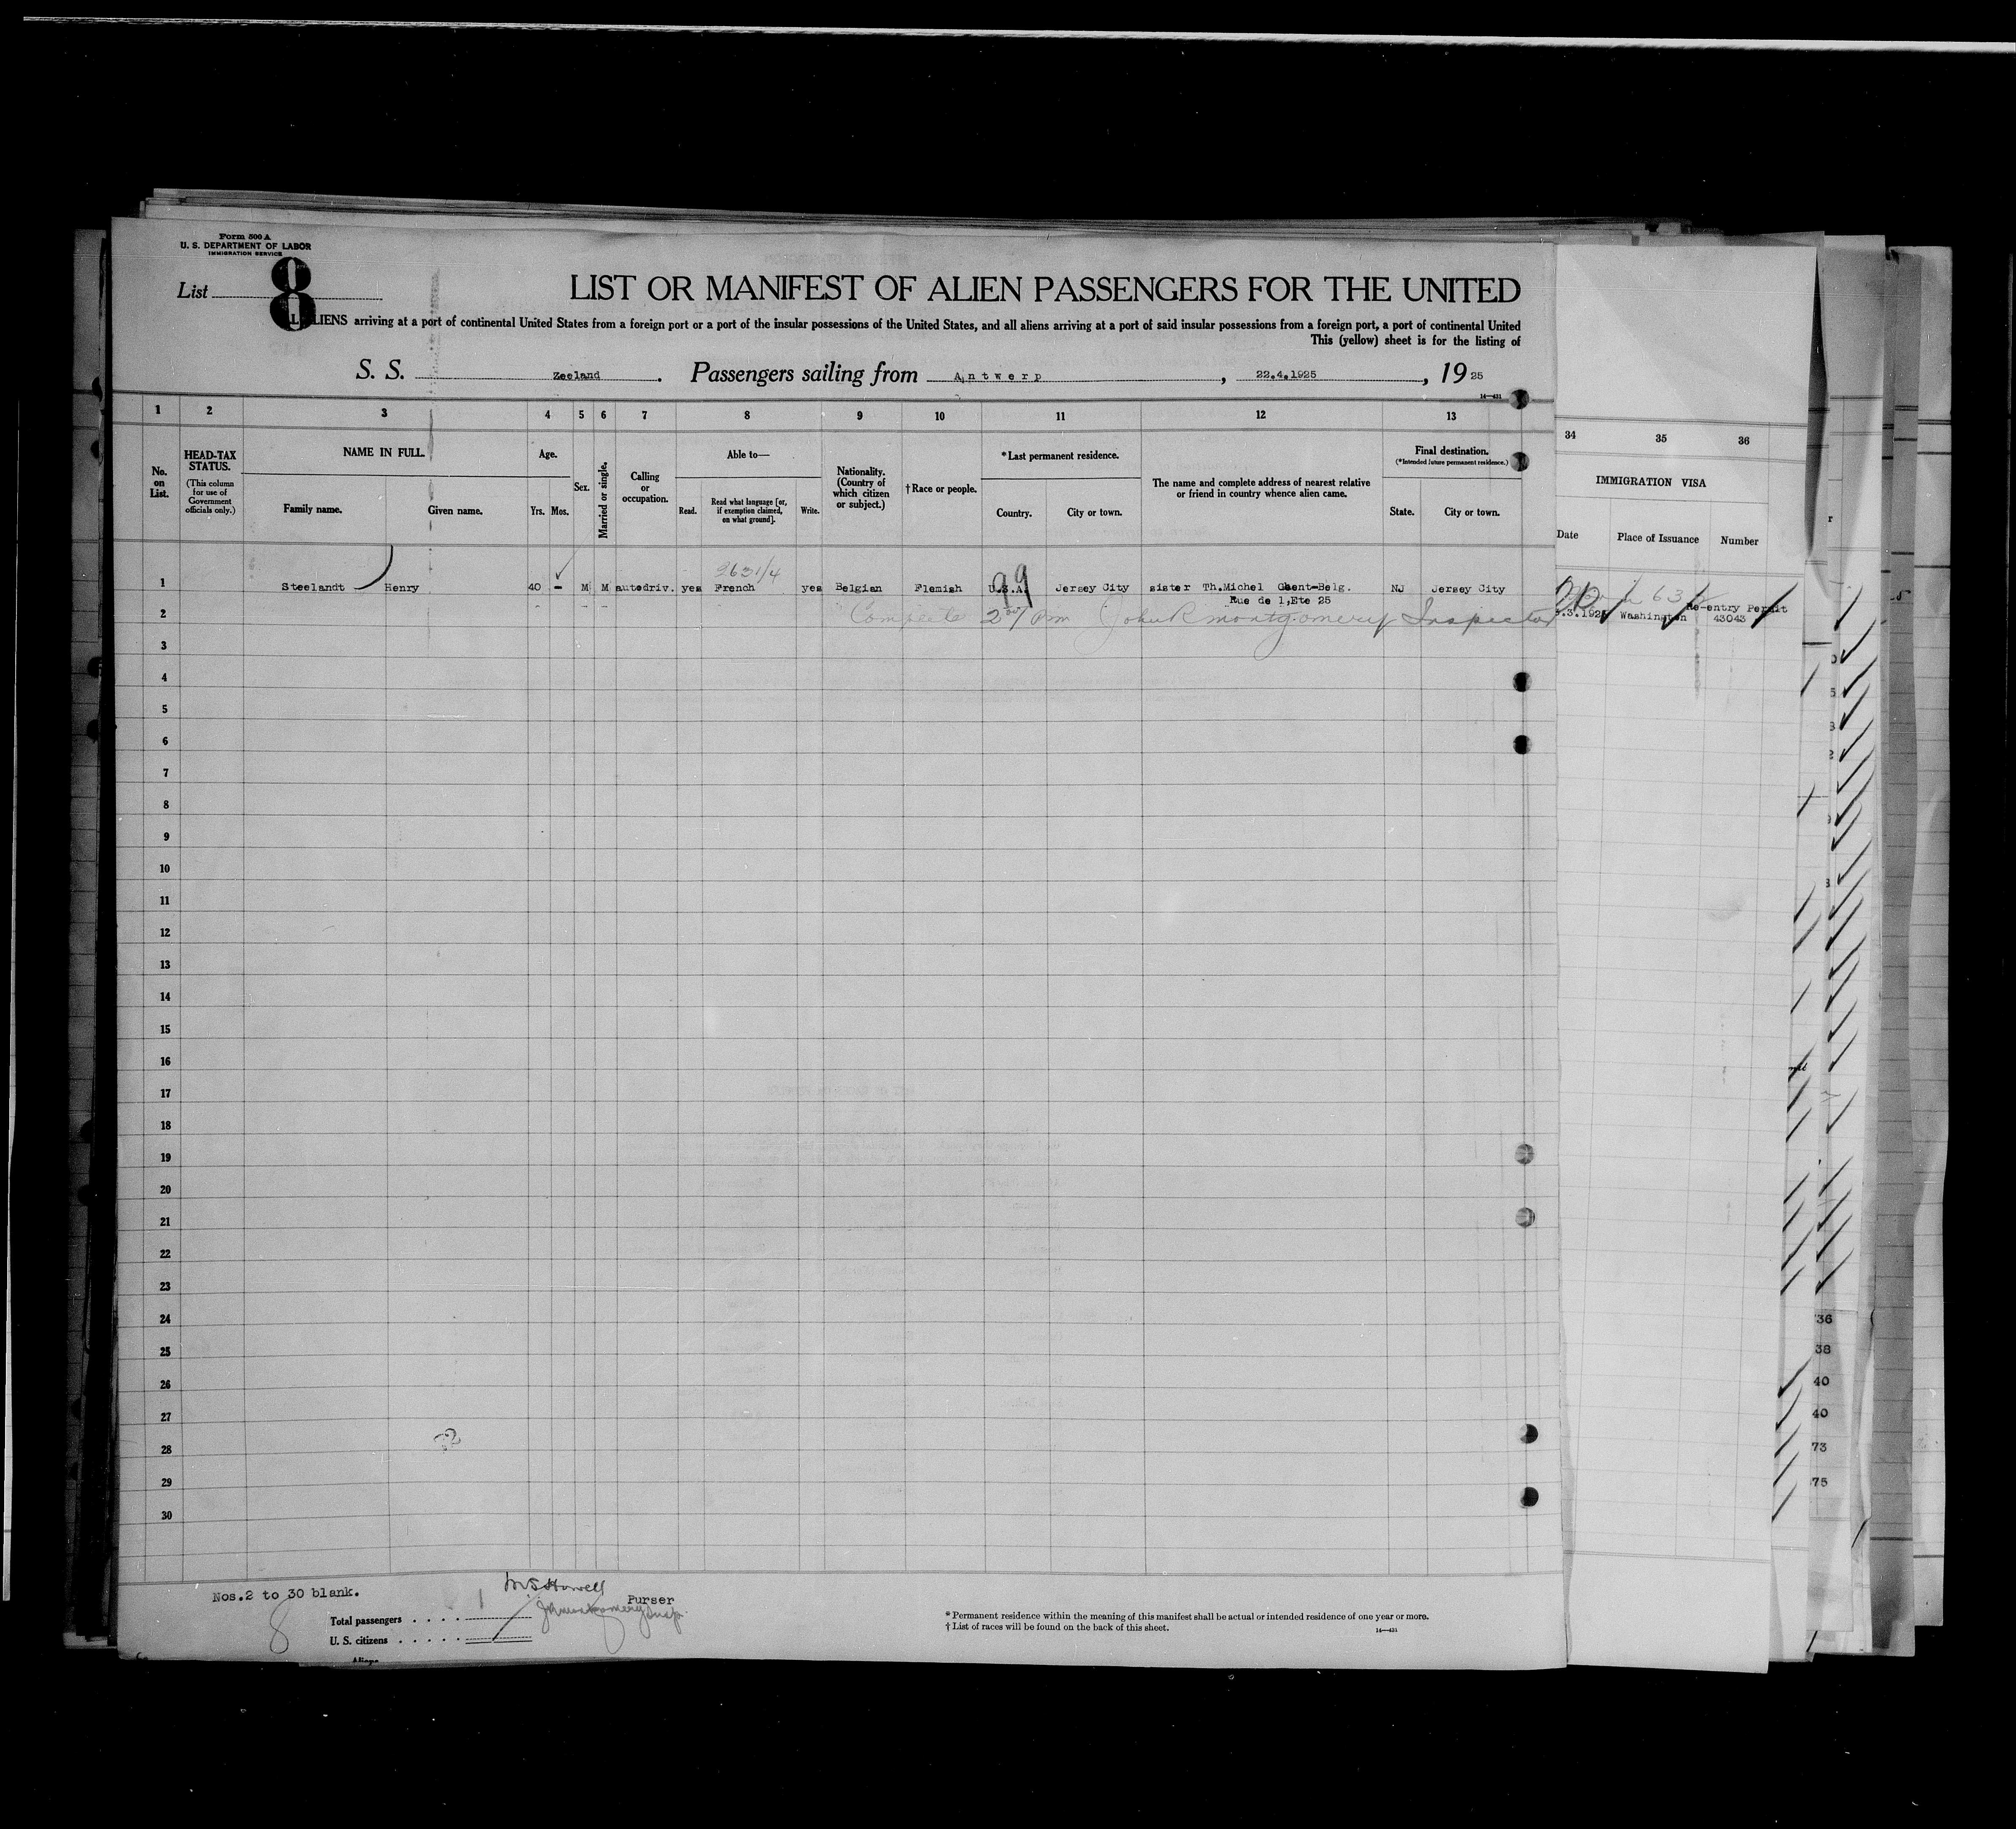 Form 500 A
U. S. DEPARTMENT OF LABOR
IMMIGRATION SERVICE
List 8
LIST OR MANIFEST OF ALIEN PASSENGERS FOR THE UNITED
LIENS arriving at a port of continental United States from a foreign port or a port of the insular possessions of the United States, and all aliens arriving at a port of said insular possessions from a foreign port, a port of continental United
This (yellow) sheet is for the listing of
S. S. Zeeland. Passengers sailing from Antwerp, 22.4.1925, 1925
14—431
1 2 3 4 5 6 7 8 9 10 11 12 13 34 35 36
No. on List.
HEAD-TAX STATUS.
(This column for use of Government officials only.)
NAME IN FULL.
Family name. Given name.
Age.
Yrs. Mos.
Sex.
Married or single.
Calling or occupation.
Able to—
Read. Read what language [or, if exemption claimed, on what ground]. Write.
Nationality. (Country of which citizen or subject.)
†Race or people.
*Last permanent residence.
Country. City or town.
The name and complete address of nearest relative or friend in country whence alien came.
Final destination.
(*Intended future permanent residence.)
State. City or town.
IMMIGRATION VISA
Date Place of Issuance Number
263 1/4
1 Steelandt Henry 40 - M M autodriv. yes French yes Belgian Flemish U.S.A. Jersey City sister Th.Michel Ghent-Belg. NJ Jersey City
99
Rue de l,Ete 25
.3.1925 Washington Re-entry Permit 43043
2 Complete 2 pm John R Montgomery Inspector
3
4
5
6
7
8
9
10
11
12
13
14
15
16
17
18
19
20
21
22
23
24
25
26
27
28
29
30
36
38
40
40
73
75
Nos.2 to 30 blank.
8
Howell Purser
Total passengers . . . . 1
U. S. citizens . . . . .
Aliens
* Permanent residence within the meaning of this manifest shall be actual or intended residence of one year or more.
† List of races will be found on the back of this sheet.
14—431